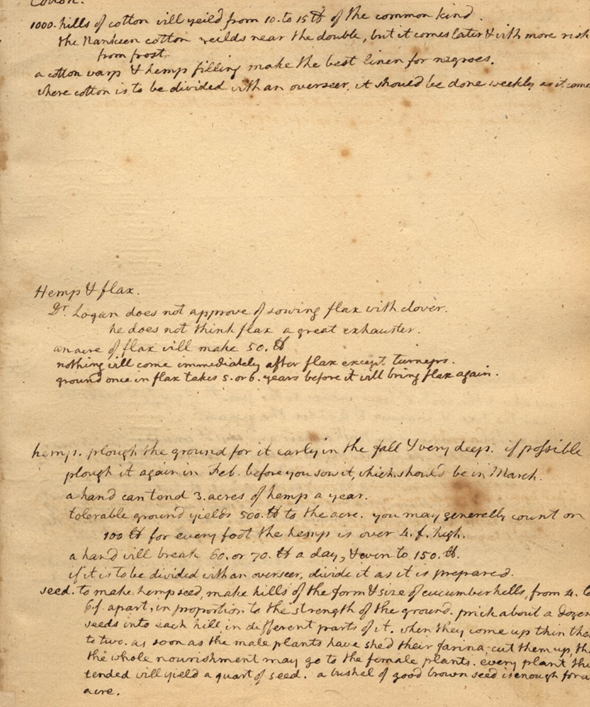 Cotton.
1000. hills of cotton will yeild from 10. to 15 ℔ of the common kind.
the Nankeen cotton yeilds near the double, but it comes later & with more risk
from frost.
a cotton warp & hemp filling make the best linen for negroes.
where cotton is to be divided with an overseer, it should be done weekly as it come
Hemp & flax.
Dr. Logan does not approve of sowing flax with clover.
he does not think flax a great exhauster.
an acre of flax will make 50. ℔
nothing will come immediately after flax except turneps.
ground once in flax takes 5. or 6. years before it will bring flax again.
hemp. plough the ground for it early in the fall & very deep. if possible
plough it again in Feb. before you sow it, which should be in March.
a hand can tend 3. acres of hemp a year.
tolerable ground yields 500. ℔ to the acre. you may generally count on
100 ℔ for every foot the hemp is over 4. f. high.
a hand will break 60. or 70. ℔ a day, & even to 150. ℔.
if it is to be divided with an overseer, divide it as it is prepared.
seed. to make hemp seed, make hills of the form & size of cucumber hills, from 4. to
6 f. apart, in proportion to the strength of the ground, prick about a dozen
seeds into each hill in different parts of it. when they come up thin the
to two. as soon as the male plants have shed their farina, cut them up, th
the whole nourishment may go to the female plants. every plant thu
tended will yield a quart of seed. a bushel of good brown seed is enough for a
acre.